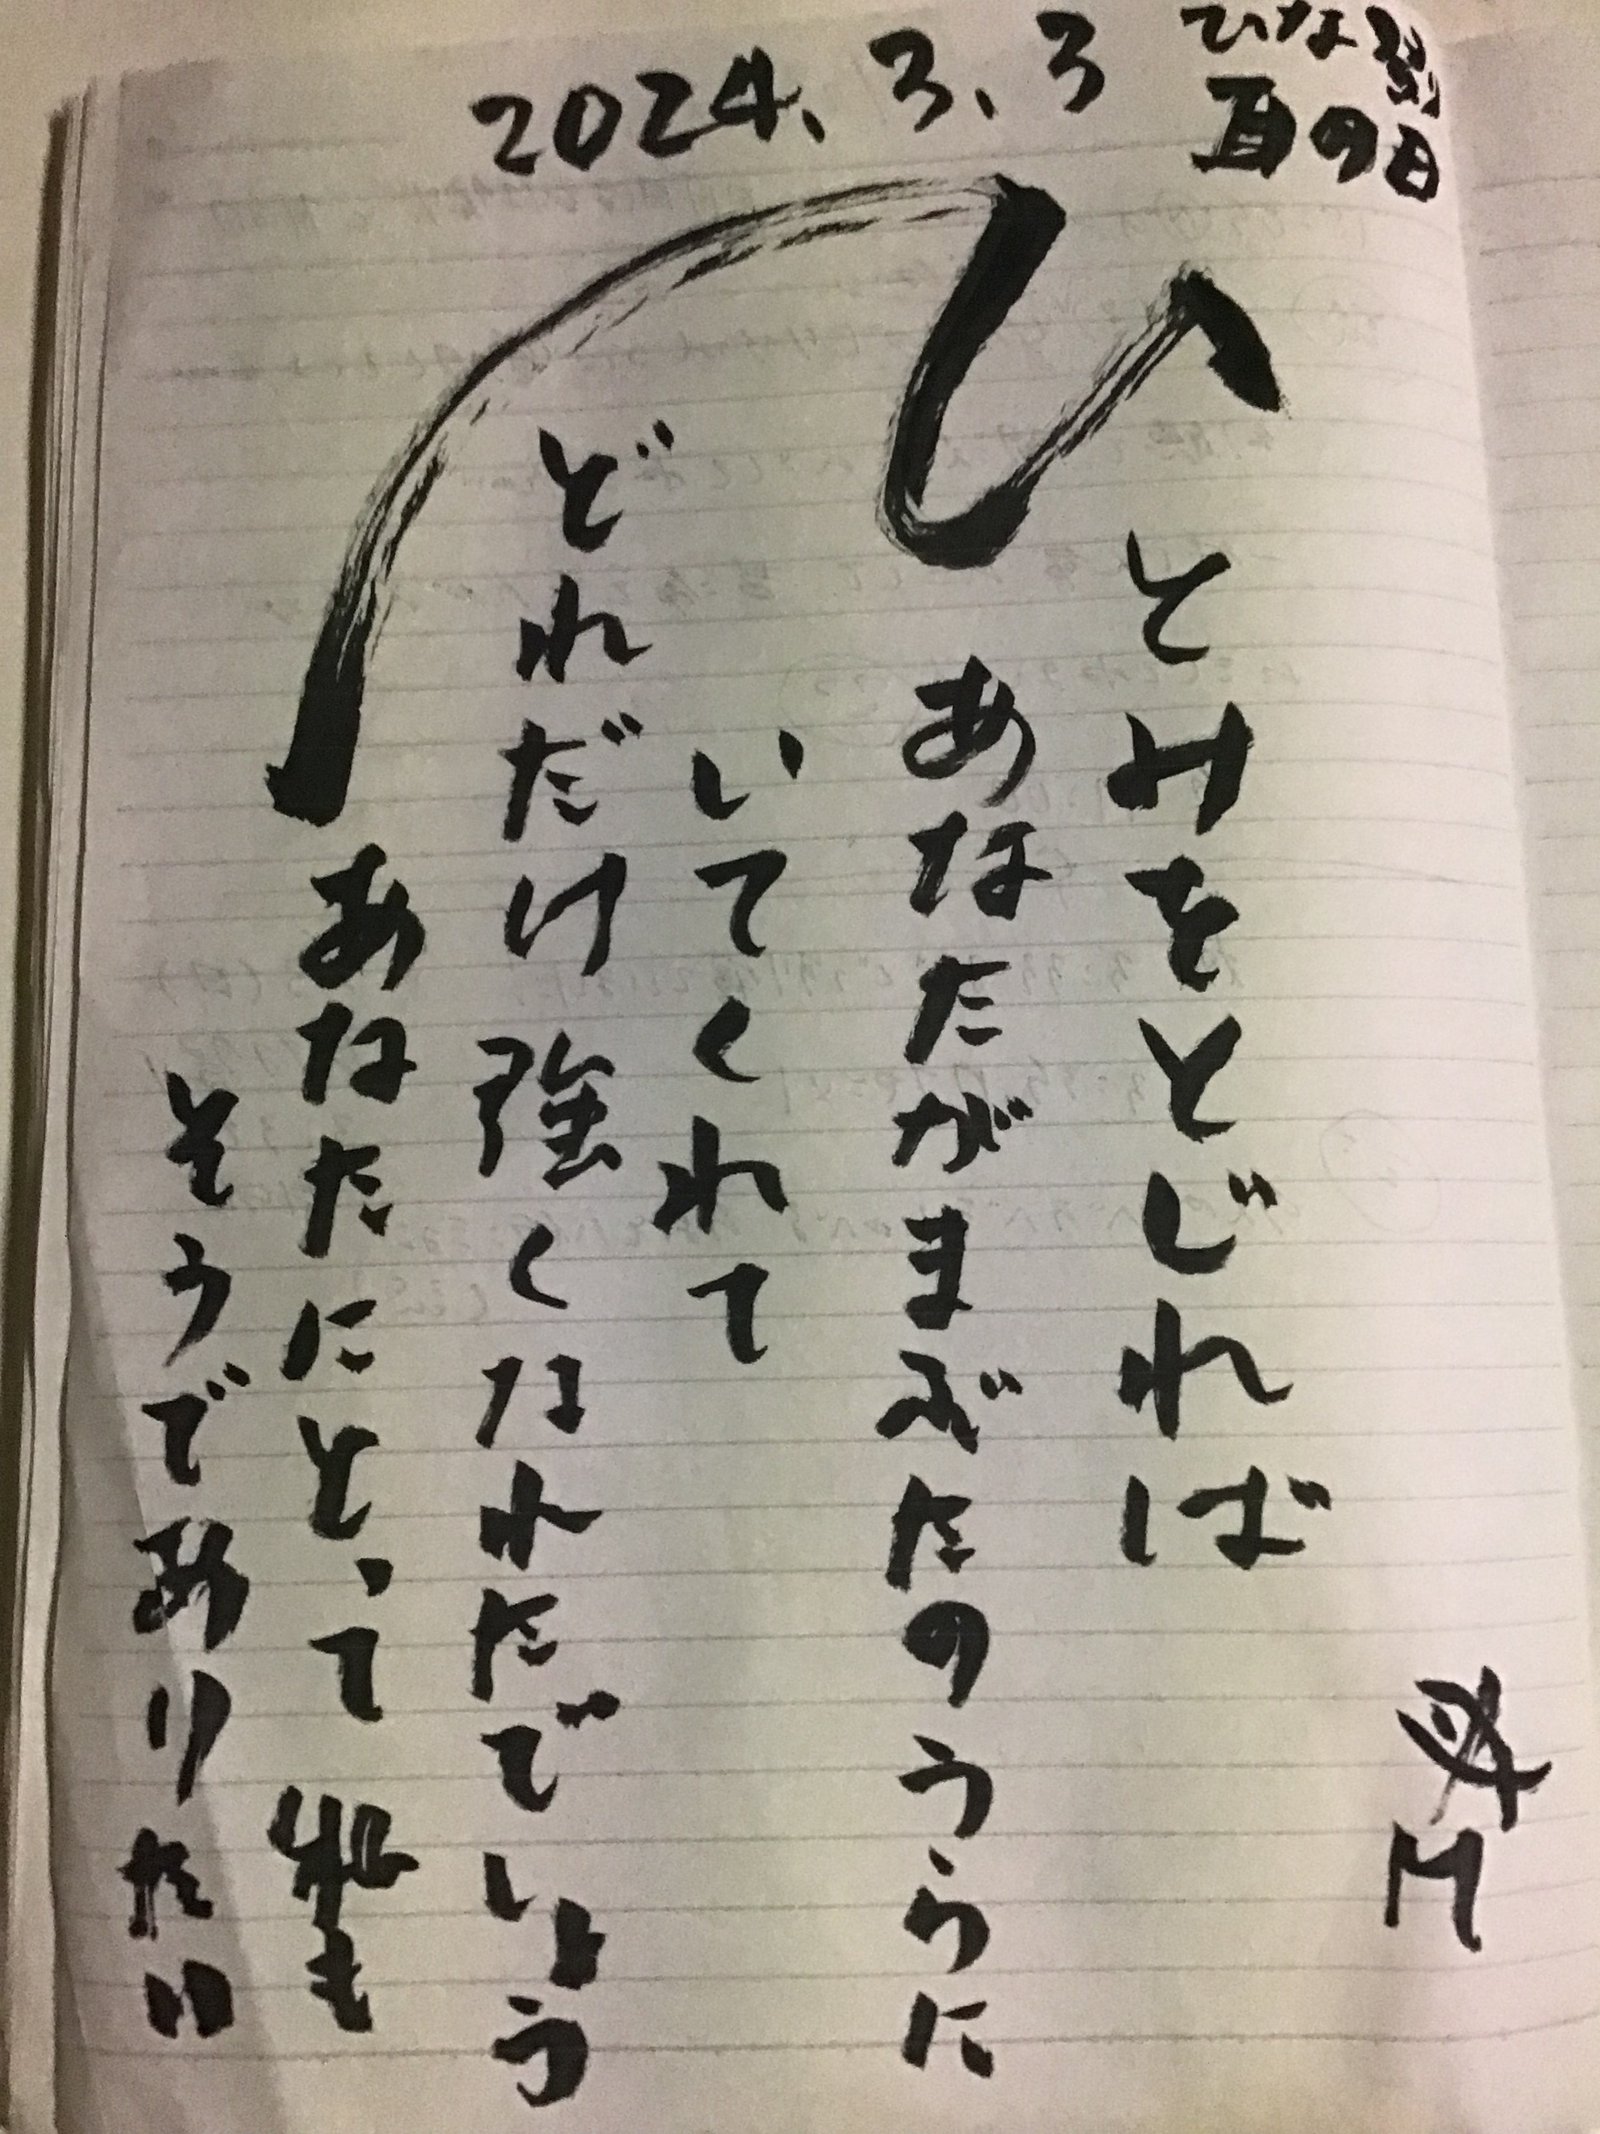 2024.3.3
ひな祭
耳の日
ひとみをとじれば
あなたがまぶたのうらに
いてくれて
どれだけ強くなれたでしょう
あなたにとって私も
そうでありたい
M